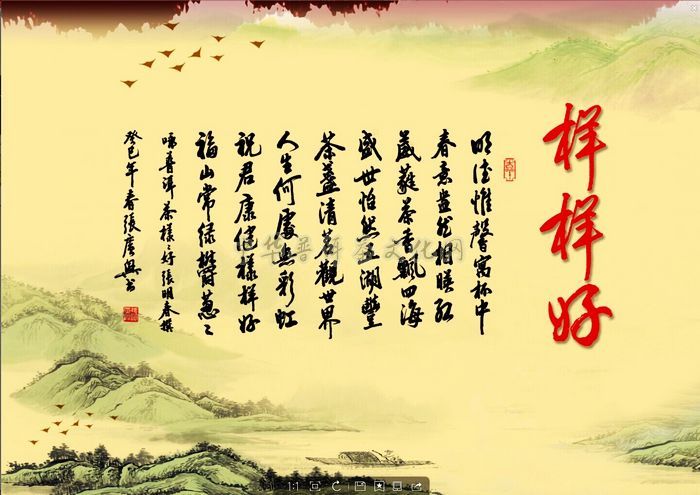 样样好
明德惟馨寓杯中
春意盎然相映红
葳蕤茶香飘四海
盛世怡然五湖丰
茶盏清茗观世界
人生何处无彩虹
祝君康健样样好
福山常绿郁葱葱
咏普洱茶样样好张明春撰
癸巳年春张广兴书
中华普洱茶文化网
1:1